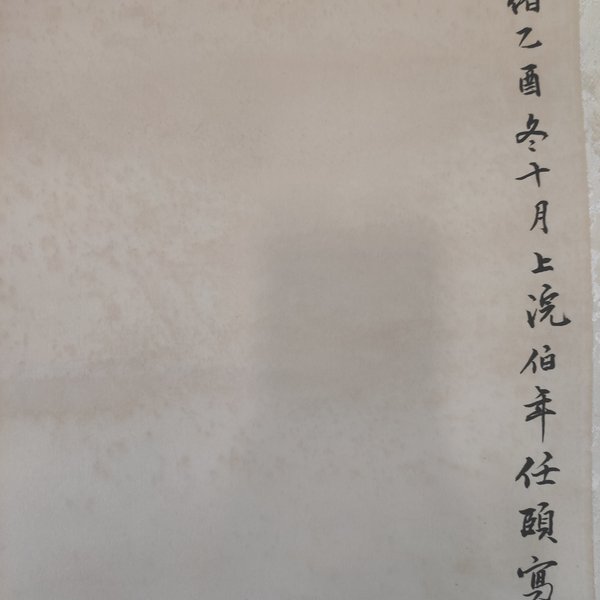 乙酉冬十月上浣伯年任頤寫